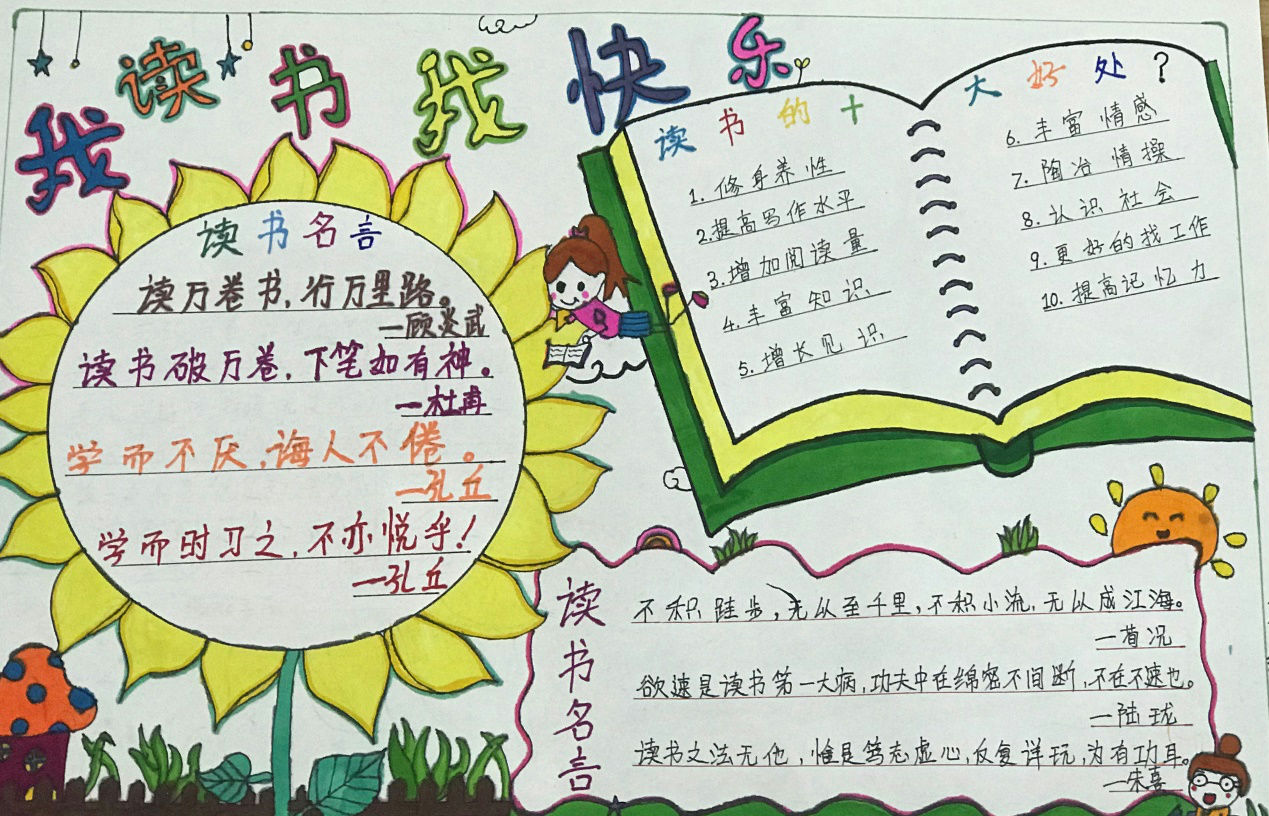 我读书我快乐
读书名言
读万卷书,行万里路。
—顾炎武
读书破万卷,下笔如有神。
—杜甫
学而不厌,诲人不倦。
—孔丘
学而时习之,不亦悦乎!
—孔丘
读书的十大好处?
1.修身养性
2.提高写作水平
3.增加阅读量
4.丰富知识
5.增长见识
6.丰富情感
7.陶冶情操
8.认识社会
9.更好的找工作
10.提高记忆力
读书名言
不积跬步,无以至千里,不积小流,无以成江海。
—荀况
欲速是读书第一大病,功夫中在绵密不间断,不在不速也。
—陆珑
读书之法无他,惟是笃志虚心,反复详玩,为有功耳。
—朱熹